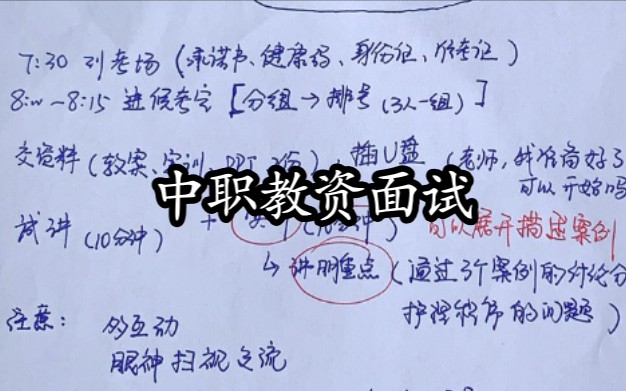 7:30 到考场（承诺书、健康码、身份证、准考证）
8:00~8:15 进候考室［分组→排号（3人一组）］
交资料（教案、实训、PPT 2份） 插U盘（老师，我准备好了
可以开始吗
中职教资面试
试讲（10分钟） + （10分钟） 可以展开描述案例
↳ 讲明重点（通过3个案例的讨论分
护理程序的问题）
注意： 多互动
眼神扫视交流